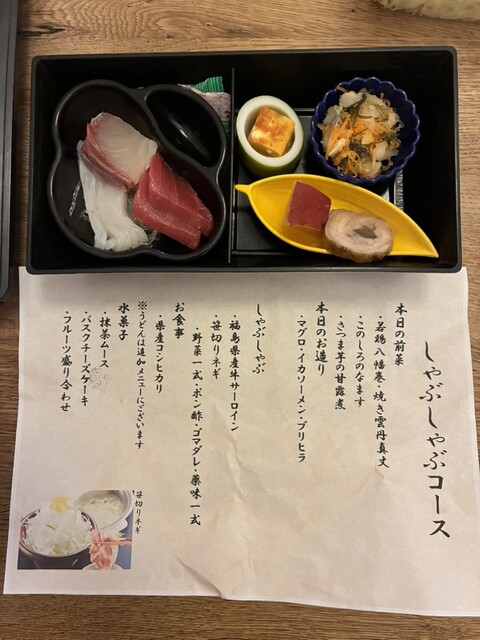 しゃぶしゃぶコース
本日の前菜
・若鶏八幡巻・焼き雲丹真丈
・このしろのなます
・さつま芋の甘露煮
本日のお造り
・マグロ・イカソーメン・ブリヒラ
しゃぶしゃぶ
・福島県産牛サーロイン
・笹切りネギ
・野菜一式・ポン酢・ゴマダレ・薬味一式
お食事
・県産コシヒカリ
※うどんは追加メニューにございます
水菓子
・抹茶ムース
・バスクチーズケーキ
・フルーツ盛り合わせ
笹切りネギ